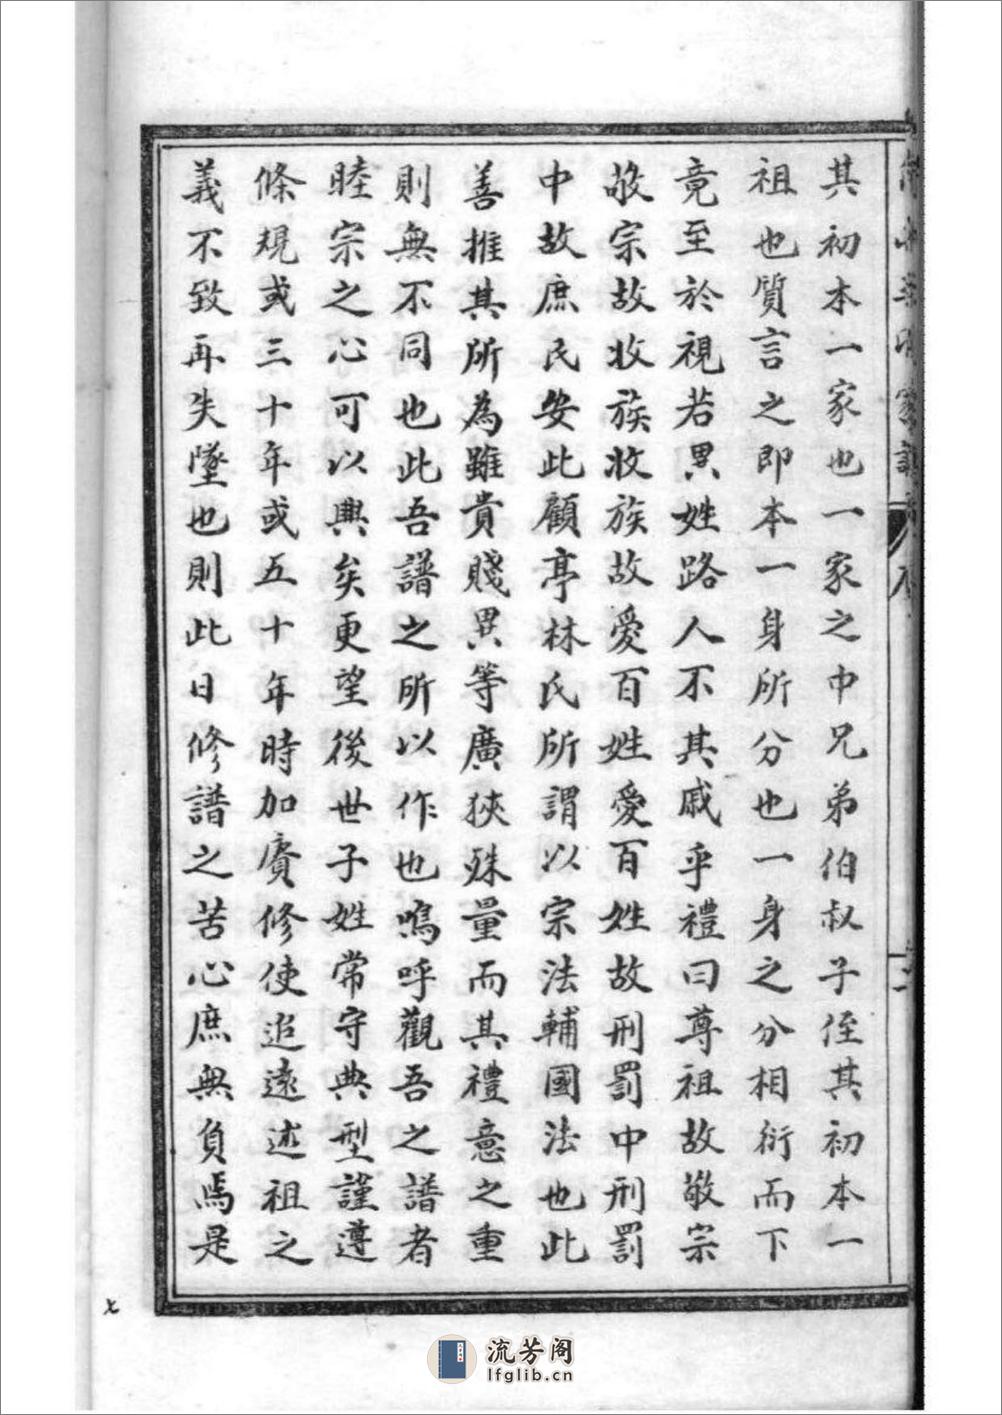 其初本一家也一家之中兄弟伯叔子侄其初本一
祖也質言之即本一身所分也一身之分相衍而下
竟至於視若異姓路人不其戚乎禮曰尊祖故敬宗
敬宗故收族收族故愛百姓愛百姓故刑罰中刑罰
中故庶民安此顧亭林氏所謂以宗法輔國法也此
善推其所為雖貴賤異等廣狹殊量而其禮意之重
則無不同也此吾譜之所以作也嗚呼觀吾之譜者
睦宗之心可以興矣更望後世子姓常守典型謹遵
條規或三十年或五十年時加賡修使追遠述祖之
義不致再失墜也則此日修譜之苦心庶無負焉是
七
流芳阁
lfglib.cn